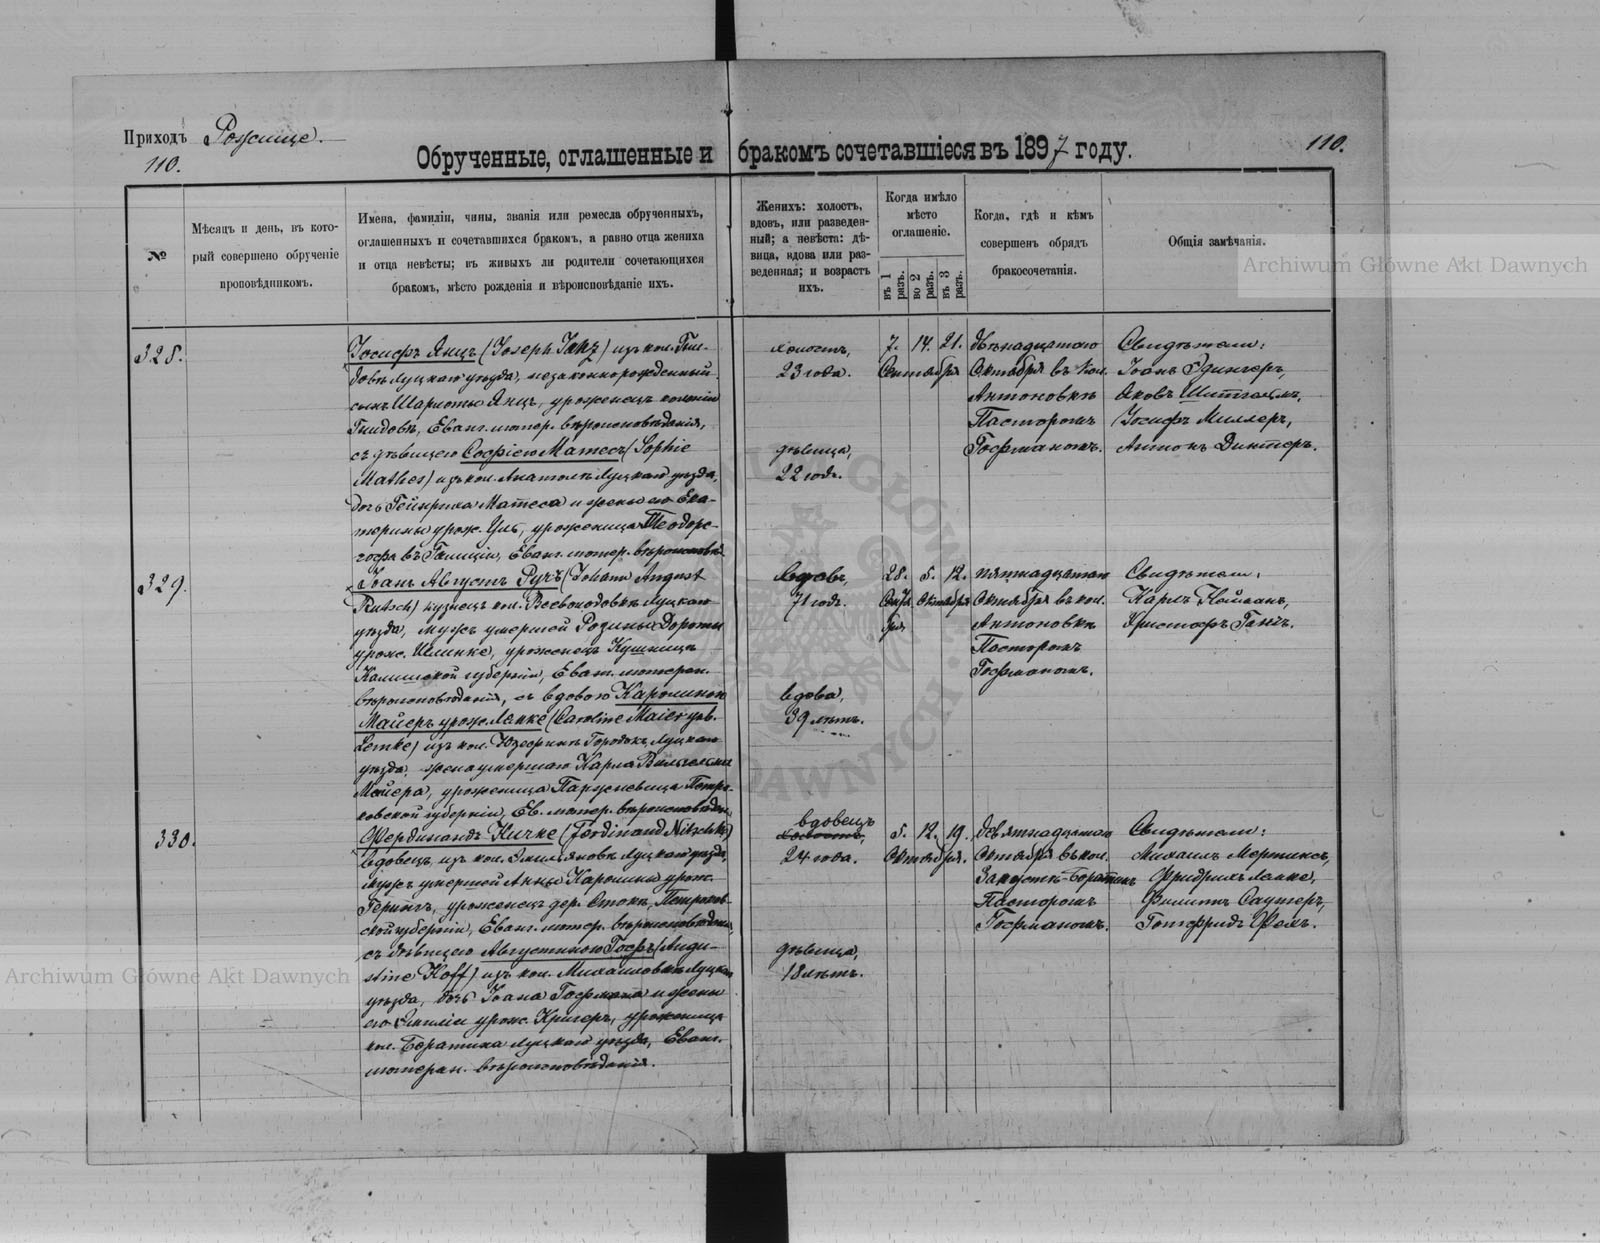 Приходъ Рожище.
110.
110.
Обрученные, оглашенные и бракомъ сочетавшіеся въ 1897 году.
№
Мѣсяцъ и день, въ кото-
рый совершено обрученіе
проповѣдникомъ.
Имена, фамиліи, чины, званія или ремесла обрученныхъ,
оглашенныхъ и сочетавшихся бракомъ, а равно отца жениха
и отца невѣсты; въ живыхъ ли родители сочетающихся
бракомъ, мѣсто рожденія и вѣроисповѣданіе ихъ.
Женихъ: холостъ,
вдовъ, или разведен-
ный; а невѣста: дѣ-
вица, вдова или раз-
веденная; и возрастъ
ихъ.
Когда имѣло
мѣсто
оглашеніе.
въ 1 разъ.
во 2 разъ.
въ 3 разъ.
Когда, гдѣ и кѣмъ
совершенъ обрядъ
бракосочетанія.
Общія замѣчанія.
Archiwum Główne Akt Dawnych
328.
Іосифъ Янцъ (Joseph Janz) изъ кол. Гни-
довъ Луцкаго уѣзда, незаконнорожденный
сынъ Шарлоты Янцъ, уроженецъ колоніи
Гнидовъ, Еванг. лютер. вѣроисповѣданія,
съ дѣвицею Софіею Матесъ (Sophie
Mathes) изъ кол. Анатоліи Луцкаго уѣзда,
дочь Гейнриха Матеса и жены его Ека-
терины урож. Уль, уроженица Теодорс-
гофа въ Галиціи, Еванг. лютер. вѣроисповѣд.
холостъ,
23 года.
дѣвица,
22 годъ.
7. 14. 21.
Сентября
двѣнадцатаго
Октября въ кол.
Антоновкѣ
Пасторомъ
Гофманомъ.
Свидѣтели:
Іоанъ Эдингеръ,
Яковъ
Іосифъ Миллеръ,
Антонъ Диктеръ.
329.
Іоанъ Августъ Ручъ (Johann August
Rutsch) кузнецъ кол. Всеволодовки Луцкаго
уѣзда, мужъ умершей Розины Дороты
урож. Шлинке, уроженецъ Кушница
Калишской губерніи, Еванг. лютеран.
вѣроисповѣданія, съ вдовою Каролиною
Майеръ урож. Лемке (Caroline Maier geb.
Lemke) изъ кол. Юзефинъ Городокъ Луцкаго
уѣзда, жена умершаго Карла Вильгельма
Майера, уроженица Парженвица Петро-
ковской губерніи, Ев. лютер. вѣроисповѣдан.
Вдовъ,
71 годъ.
вдова,
39 лѣтъ.
28. 5. 12.
Сентя Октября
бря
пятнадцатаго
Октября въ кол.
Антоновкѣ
Пасторомъ
Гофманомъ.
Свидѣтели:
Карлъ Нейманъ,
Христофъ Ганъ.
330.
Фердинандъ Ничке (Ferdinand Nitschke)
вдовецъ, изъ кол. Эмильяновки Луцкаго уѣзда,
мужъ умершей Анны Каролины урож.
Герингъ, уроженецъ дер. Стоки, Петроков-
ской губерніи, Еванг. лютер. вѣроисповѣдан.
съ дѣвицею Августиною Гофъ (Augu-
stine Hoff) изъ кол. Михаиловки Луцкаго
уѣзда, дочь Іоана Гофмана и жены
его Эмиліи урож. Кригеръ, уроженица
кол. Боратина Луцкаго уѣзда, Еванг.
лютеран. вѣроисповѣданія.
вдовецъ
холостъ,
24 года.
дѣвица,
18 лѣтъ.
5. 12. 19.
Октября.
девятнадцатаго
Октября въ кол.
Боратинъ
Пасторомъ
Гофманомъ.
Свидѣтели:
Михаилъ Мертинсъ,
Фридрихъ Ланке,
Филиппъ Саутеръ,
Готфридъ Фельъ.
Archiwum Główne Akt Dawnych